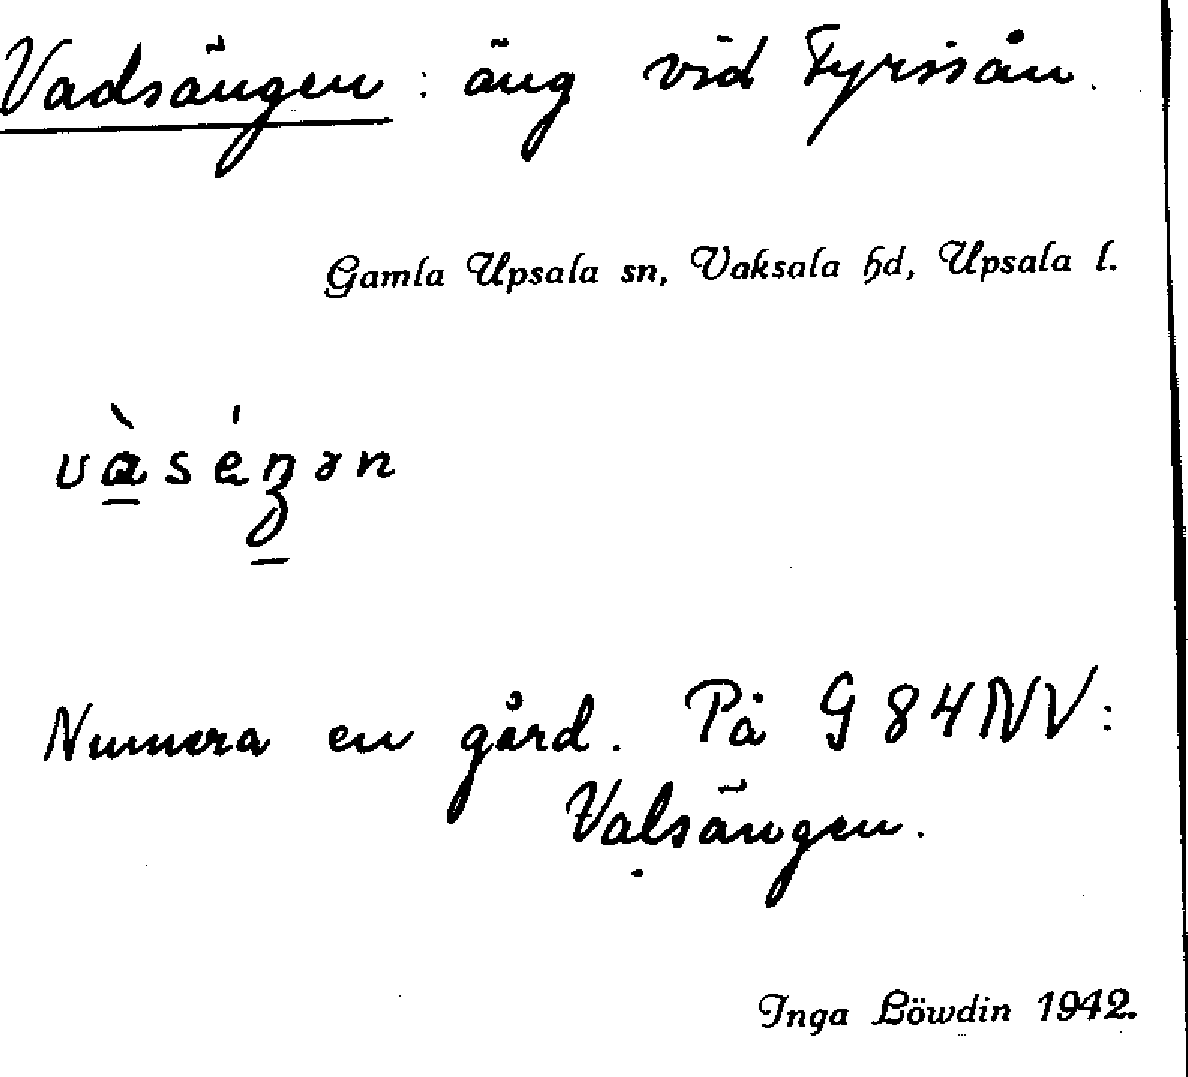 Vadsängen : äng vid Fyrisån.
Gamla Upsala sn, Vaksala hd, Upsala l.
Numera en gård. På G 84 NV:
Valsängen.
Inga Löwdin 1942.